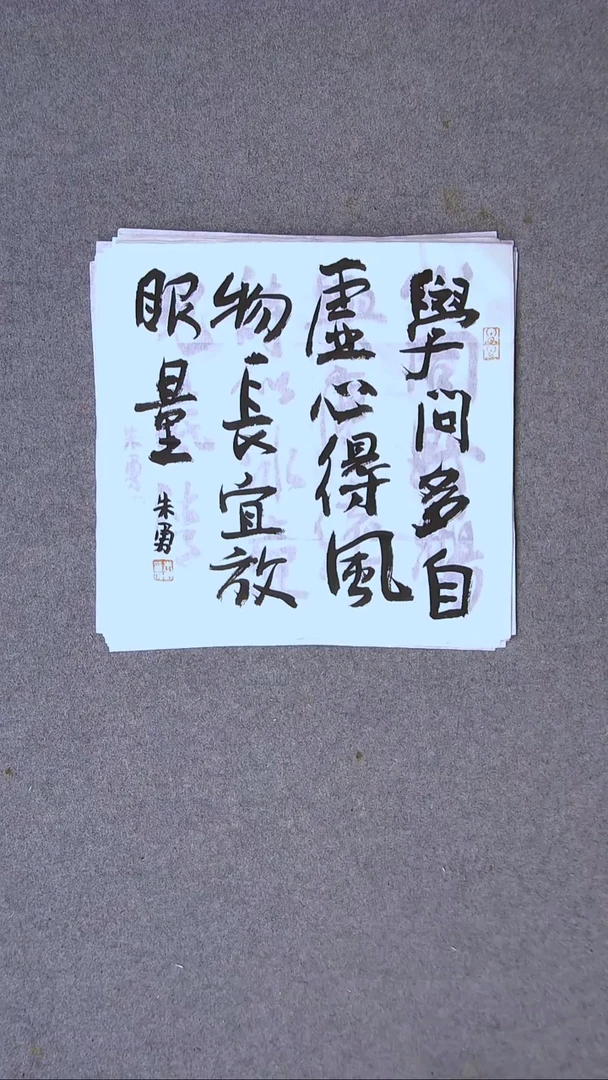 學问多自
虛心得風
物長宜放
眼量
朱勇